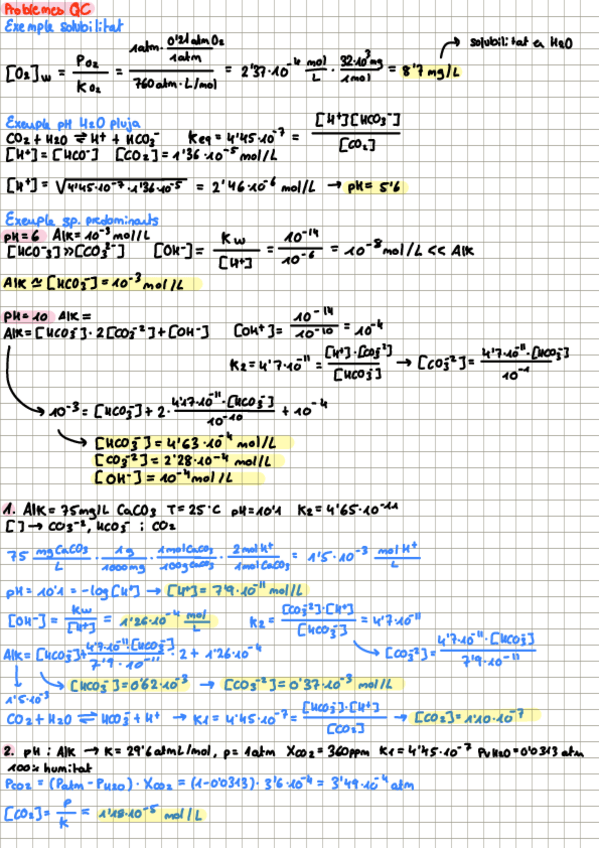 Problemes QC
Exemple solubilitat
[O2]w = PO2 / KO2 = 1atm · 0'21atm O2 / 1atm / 760 atm·L/mol = 2'37·10⁻⁴ mol/L · 32·10³mg / 1mol = 8'7 mg/L → solubilitat en H2O
Exemple pH H2O pluja
CO2 + H2O ⇌ H+ + HCO3- Keq = 4'45·10⁻⁷ = [H+][HCO3-] / [CO2]
[H+] = [HCO-] [CO2] = 1'36·10⁻⁵ mol/L
[H+] = √4'45·10⁻⁷·1'36·10⁻⁵ = 2'46·10⁻⁶ mol/L → pH = 5'6
Exemple sp. predominants
pH = 6 Alk = 10⁻³ mol/L
[HCO-3] >> [CO3²-] [OH-] = Kw / [H+] = 10⁻¹⁴ / 10⁻⁶ = 10⁻⁸ mol/L << Alk
Alk ≃ [HCO3-] = 10⁻³ mol/L
pH = 10 Alk =
Alk = [HCO3-]·2[CO3-²] + [OH-] [OH+] = 10⁻¹⁴ / 10⁻¹⁰ = 10⁻⁴
K2 = 4'7·10⁻¹¹ = [H+]·[CO3-²] / [HCO3-] → [CO3-²] = 4'7·10⁻¹¹·[HCO3-] / 10⁻¹
10⁻³ = [HCO3-] + 2· 4'7·10⁻¹¹·[HCO3-] / 10⁻¹⁰ + 10⁻⁴
[HCO3-] = 4'63·10⁻⁴ mol/L
[CO3-²] = 2'28·10⁻⁴ mol/L
[OH-] = 10⁻⁴ mol/L
1. Alk = 75mg/L CaCO3 T = 25°C pH = 10'1 K2 = 4'65·10⁻¹¹
[] → CO3-², HCO3- i CO2
75 mg CaCO3 / L · 1g / 1000mg · 1molCaCO3 / 100gCaCO3 · 2molH+ / 1molCaCO3 = 1'5·10⁻³ mol H+ / L
pH = 10'1 = -log[H+] → [H+] = 7'9·10⁻¹¹ mol/L
[OH-] = Kw / [H+] = 1'26·10⁻⁴ mol / L K2 = [CO3-²]·[H+] / [HCO3-] = 4'7·10⁻¹¹
Alk = [HCO3-] + 4'7·10⁻¹¹·[HCO3-] / 7'9·10⁻¹¹ · 2 + 1'26·10⁻⁴ → [CO3-²] = 4'7·10⁻¹¹·[HCO3-] / 7'9·10⁻¹¹
1'5·10⁻³ → [HCO3-] = 0'62·10⁻³ → [CO3-²] = 0'37·10⁻³ mol/L
CO2 + H2O ⇌ HCO3- + H+ → K1 = 4'45·10⁻⁷ = [HCO3-]·[H+] / [CO2] → [CO2] = 1'10·10⁻⁷
2. pH i Alk → K = 29'6 atmL/mol, p = 1atm XCO2 = 360ppm K1 = 4'45·10⁻⁷ PvH2O = 0'0313 atm
100% humitat
PCO2 = (Patm - PH2O)·XCO2 = (1-0'0313)·3'6·10⁻⁴ = 3'49·10⁻⁴ atm
[CO2] = P / K = 1'18·10⁻⁵ mol/L